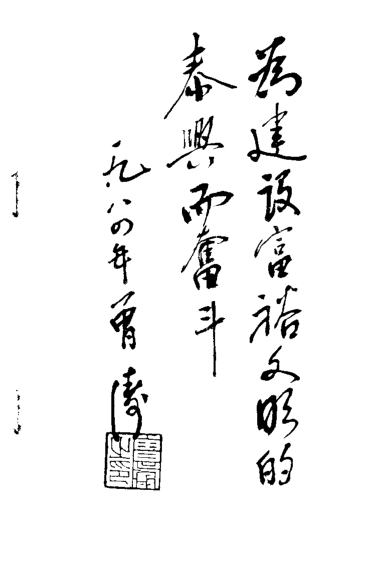 為建设富裕文明的
泰興而奮斗
一九八四年曾涛